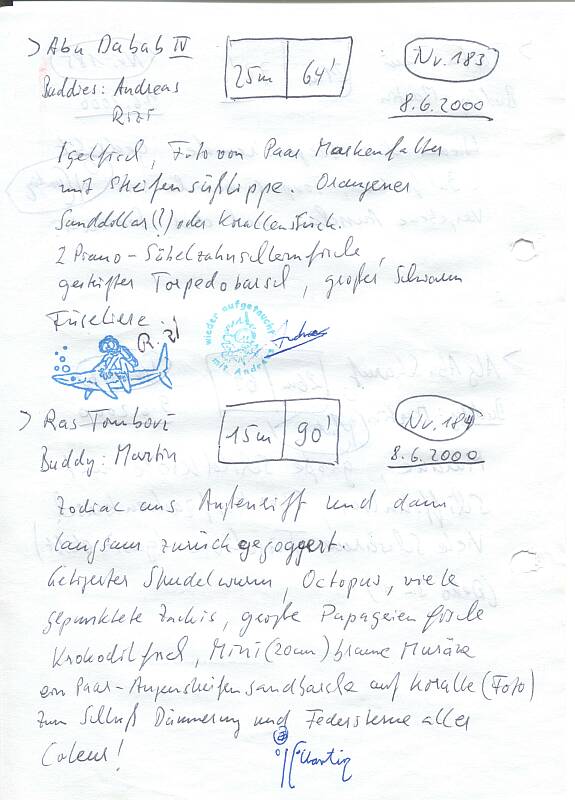 > Abu Dabab IV
25m 64'
Nr. 183
Buddies: Andreas
Rizi
8.6.2000
Igelfisch, Foto von Paar Maskenfalter
mit Streifensüßlippe. Orangener
Sanddollar(?) oder Korallenstück.
2 Piano-Säbelzahnschleimfische,
gestreifter Torpedobarsch, großer Schwarm
Füseliere
wieder aufgetaucht
mit Andreas
> Ras Tombovi
15m 90'
Nr. 184
Buddy: Martin
8.6.2000
Zodiac ans Außenriff und dann
langsam zurückgejoggert
Getigerter Strudelwurm, Octopus, viele
gepunktete Zackis, große Papageienfische
Krokodilfisch, Mini (20cm) braune Muräne
ein Paar-Augenstreifensandbarsche auf Koralle (Foto)
Zum Schluß Dämmerung und Federsterne aller
Coleur!
Martin